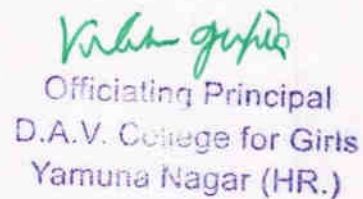 Gupta
Officiating Principal
D.A.V. College for Girls
Yamuna Nagar (HR.)